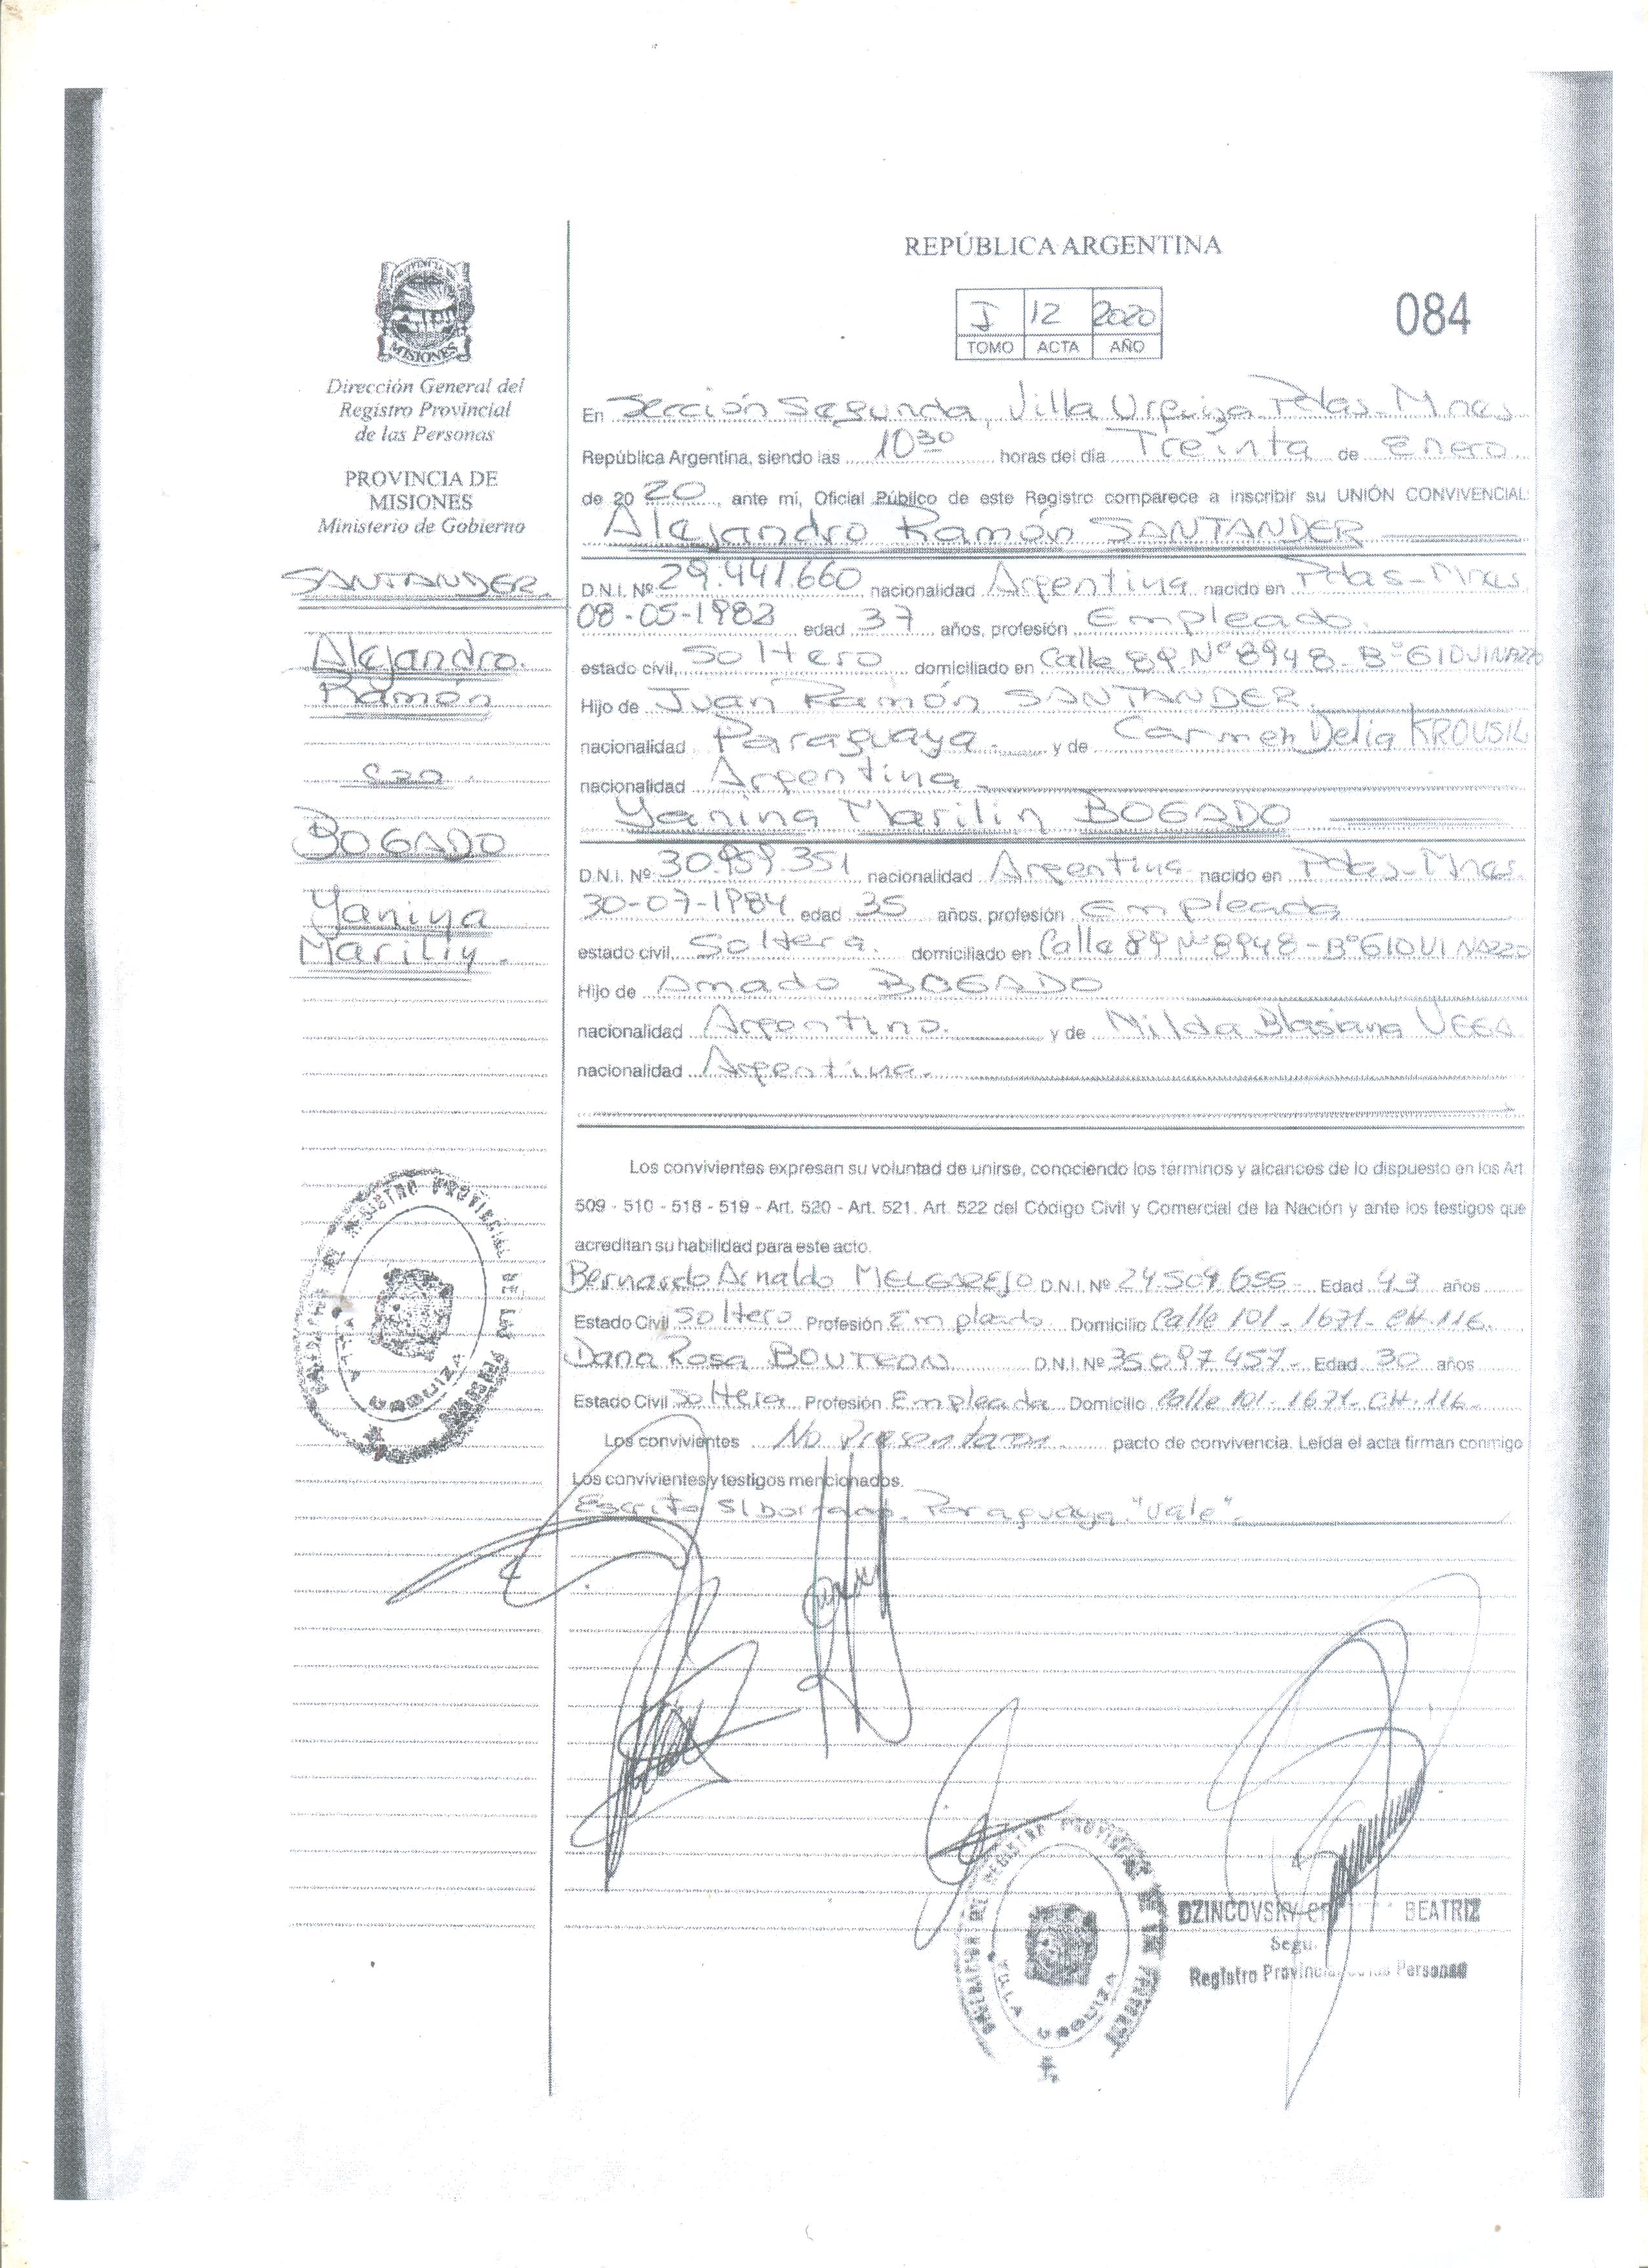 REPÚBLICA ARGENTINA
PROVINCIA DE
MISIONES
I 12 2020
TOMO ACTA AÑO
084
Dirección General del
Registro Provincial
de las Personas
PROVINCIA DE
MISIONES
Ministerio de Gobierno
SANTANDER.
Alejandro
Ramón
BOGADO
Yanina
Marilin.
En Sección Segunda, Villa Urquiza Pdas-Mnes
República Argentina, siendo las 10 30 horas del día Treinta de Enero
de 20 20, ante mí, Oficial Público de este Registro comparece a inscribir su UNIÓN CONVIVENCIAL:
Alejandro Ramón SANTANDER
D.N.I. Nº 29.441.660 nacionalidad Argentina nacido en Pdas-Mnes.
08-05-1982 edad 37 años, profesión Empleado.
estado civil, Soltero domiciliado en Calle 89 Nº 8948-Bº GIOVINAZZO
Hijo de Juan Ramón SANTANDER.
nacionalidad Paraguaya. y de Carmen Delia KROUSIL
nacionalidad Argentina.
Yanina Marilin BOGADO
D.N.I. Nº 30.959.351 nacionalidad Argentina nacido en Pdas-Mnes.
30-07-1984 edad 35 años, profesión Empleada
estado civil, Soltera. domiciliado en Calle 89 Nº 8948-Bº GIOVINAZZO
Hijo de Amado BOGADO
nacionalidad Argentino. y de Nilda Blasiana VEGA
nacionalidad Argentina.
Los convivientes expresan su voluntad de unirse, conociendo los términos y alcances de lo dispuesto en los Art.
509 - 510 - 518 - 519 - Art. 520 - Art. 521. Art. 522 del Código Civil y Comercial de la Nación y ante los testigos que
acreditan su habilidad para este acto.
Bernardo Arnaldo MELGAREJO D.N.I. Nº 24.509.655- Edad 43 años
Estado Civil Soltero Profesión Empleado Domicilio Calle 101-1671-CH.116.
Dana Rosa BOUTRON D.N.I. Nº 35.097.457- Edad 30 años
Estado Civil Soltera Profesión Empleada Domicilio Calle 101-1671-CH.116-
Los convivientes No Presentaron. pacto de convivencia. Leída el acta firman conmigo
Los convivientes y testigos mencionados.
Escrito S/borrado. Paraguaya. "Vale".
REGISTRO PROVINCIAL DE LAS PERSONAS
VILLA URQUIZA
REGISTRO PROVINCIAL DE LAS PERSONAS
VILLA URQUIZA
DZINCOVSKY BEATRIZ
Registro Provincial de las Personas